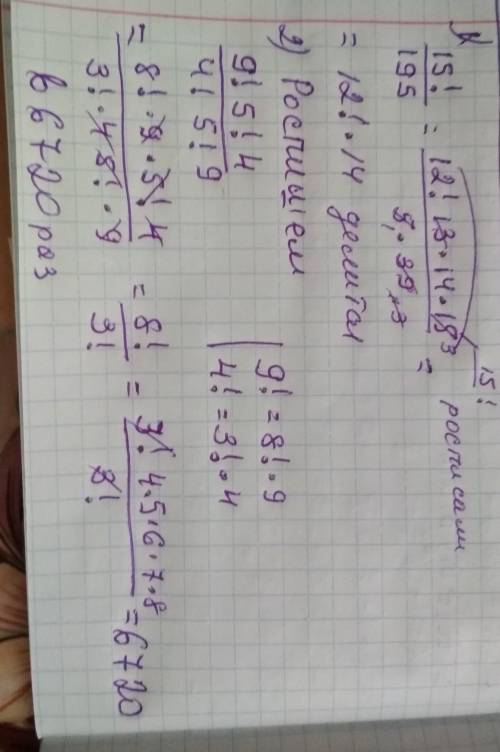 1)
15! / 195 = 12! 13·14·15 3 / 5·39·3 =
15! росписали
= 12!·14 делитса
2) Роспишем
9! 5! 4 / 4! 5! 9
9! = 8!·9
4! = 3!·4
= 8!·9·5!·4 / 3!·4 5!·9 = 8! / 3! = 3! 4·5·6·7·8 / 3! = 6720
в 6720 раз